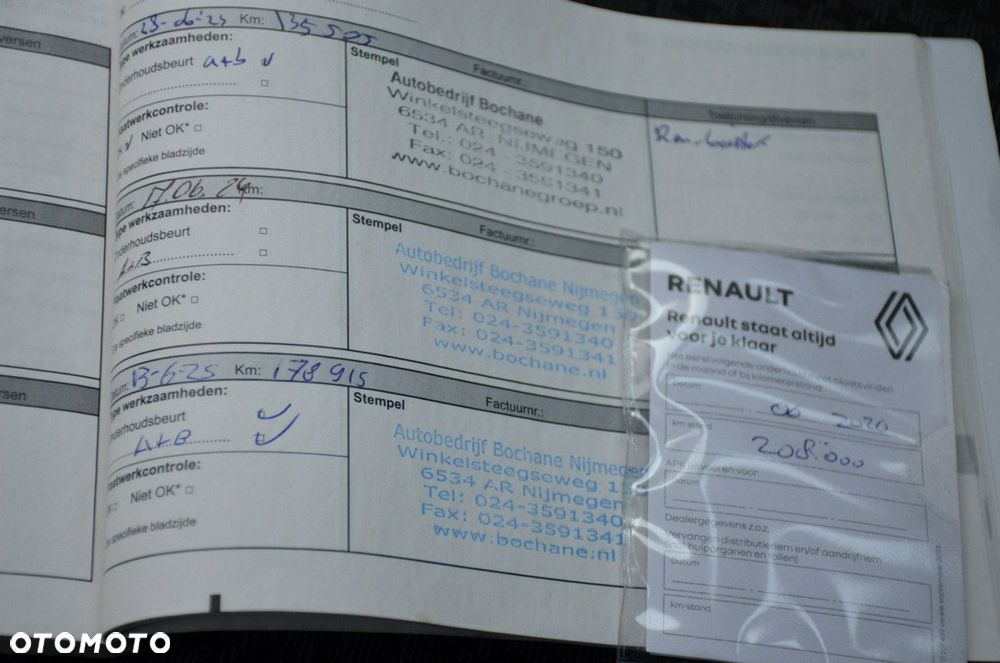 ersen
Datum: 23-06-23 Km: 135 505
Type werkzaamheden:
Onderhoudsbeurt a+b
Plaatwerkcontrole:
Niet OK*
Zie specifieke bladzijde
Stempel
Factuurnr.:
Autobedrijf Bochane
Winkelsteegseweg 150
6534 AR NIJMEGEN
Tel.: 024 - 3591340
Fax: 024 - 3591341
www.bochanegroep.nl
ersen
Datum: 17.06.24 Km:
Type werkzaamheden:
Onderhoudsbeurt
A+B
Plaatwerkcontrole:
OK Niet OK*
Zie specifieke bladzijde
Stempel
Factuurnr.:
Autobedrijf Bochane Nijmegen
Winkelsteegseweg 150
6534 AR Nijmegen
Tel: 024-3591340
Fax: 024-3591341
www.bochane.nl
rsen
Datum: 13-6-25 Km: 178 915
Type werkzaamheden:
Onderhoudsbeurt
A+B
Plaatwerkcontrole:
OK Niet OK*
Zie specifieke bladzijde
Stempel
Factuurnr.:
Autobedrijf Bochane Nijmegen
Winkelsteegseweg 15
6534 AR Nijmegen
Tel: 024-3591340
Fax: 024-3591341
www.bochane.nl
RENAULT
Renault staat altijd
voor je klaar
Het eerstvolgende onderhoud moet plaatsvinden
in de maand of bij kilometerstand:
Datum
06 2026
km-stand
208.000
APK uitvoeren voor:
Datum
Dealergegevens z.o.z.
Vervangen distributieriem en/of aandrijfriem
(incl. hulporganen en rollen)
Datum
km-stand
OTOMOTO